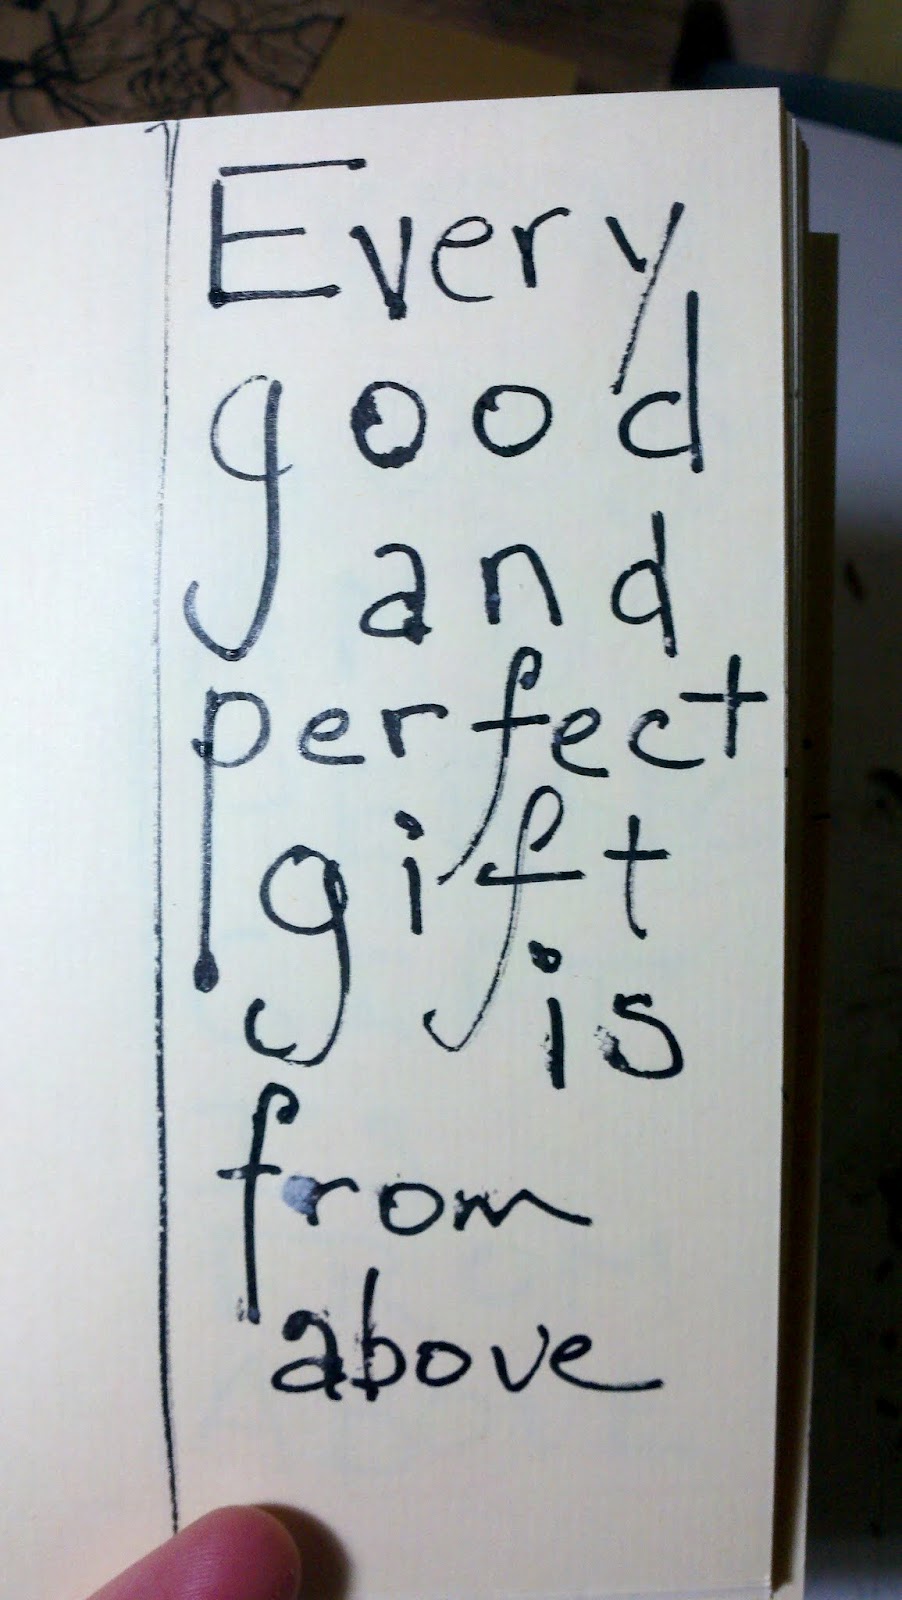 Every
good
and
perfect
gift
is
from
above